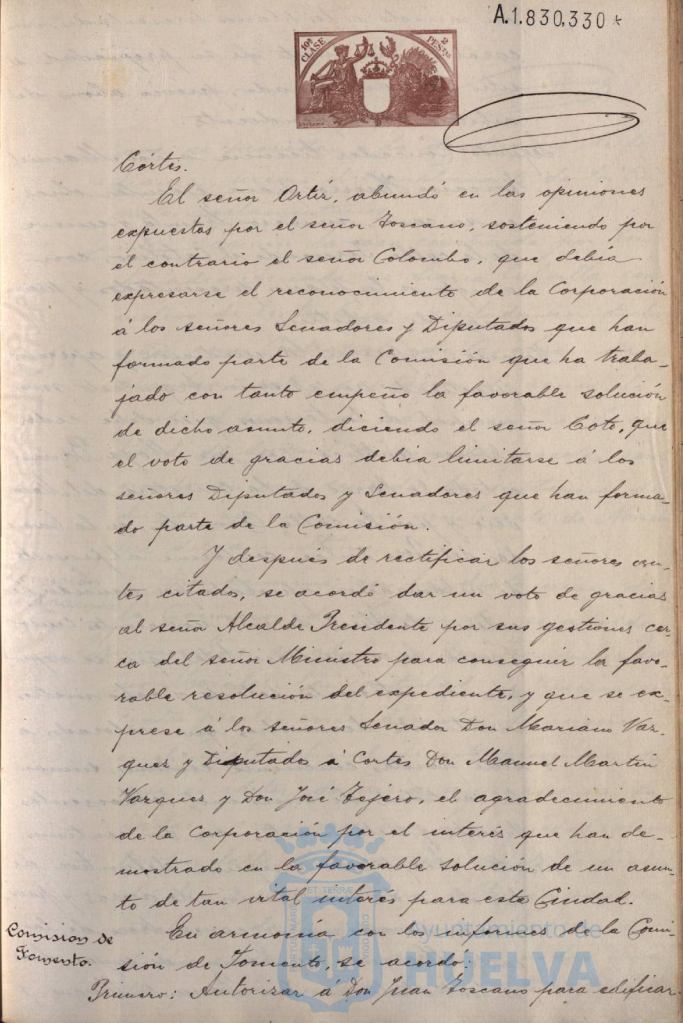 A.1.830,330*
10ª CLASE
2 PESTAS
Córtes.
El señor Ortiz, abundó en las opiniones
expuestas por el señor Toscano, sosteniendo por
el contrario el señor Colombo, que debia
expresarse el reconocimiento de la Corporación
á los señores Senadores y Diputados que han
formado parte de la Comisión que ha traba-
jado con tanto empeño la favorable solución
de dicho asunto, diciendo el señor Coto, que
el voto de gracias debia limitarse á los
señores Diputados y Senadores que han forma-
do parte de la Comisión.
Y después de rectificar los señores an-
tes citados, se acordó dar un voto de gracias
al señor Alcalde Presidente por sus gestiones cer-
ca del señor Ministro para conseguir la favo-
rable resolución del expediente, y que se ex-
prese á los señores Senador Don Mariano Vaz-
quez y Diputados á Cortes Don Manuel Martin
Vazquez y Don José Tejero, el agradecimiento
de la Corporación por el interés que han de-
mostrado en la favorable solución de un asun-
to de tan vital interés para esta Ciudad.
Comision de
Fomento.
En armonía con los informes de la Comi-
sión de Fomento, se acordo:
Primero: Autorizar á Don Juan Toscano para edificar
Ayuntamiento de
HUELVA